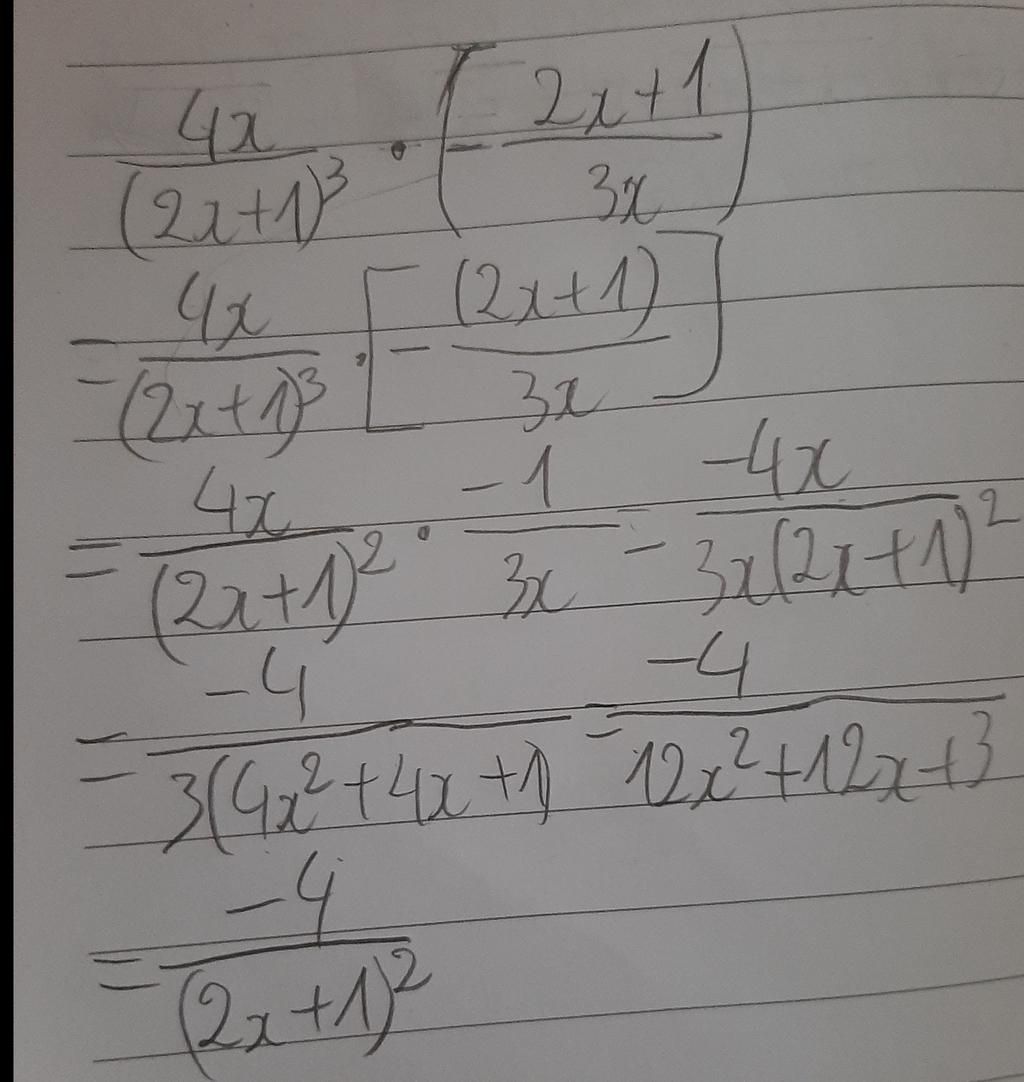 4x/(2x+1)³ · (- 2x+1/3x)
= 4x/(2x+1)³ · [- (2x+1)/3x]
= 4x/(2x+1)² · -1/3x = -4x/3x(2x+1)²
= -4/3(4x²+4x+1) = -4/12x²+12x+3
= -4/(2x+1)²